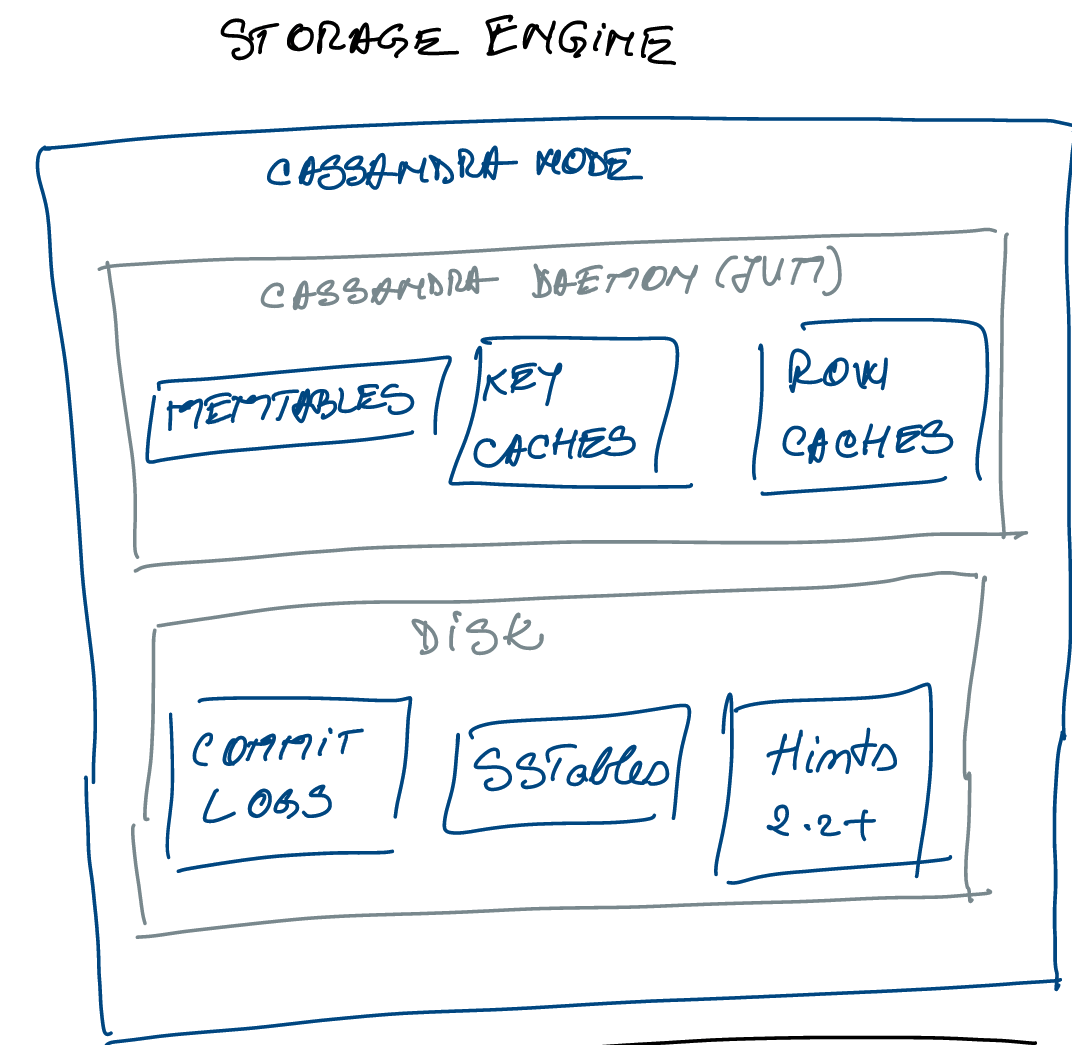 STORAGE ENGINE
CASSANDRA NODE
CASSANDRA DAEMON (JVM)
MEMTABLES
KEY
CACHES
ROW
CACHES
DISK
COMMIT
LOGS
SSTables
Hints
2.2+